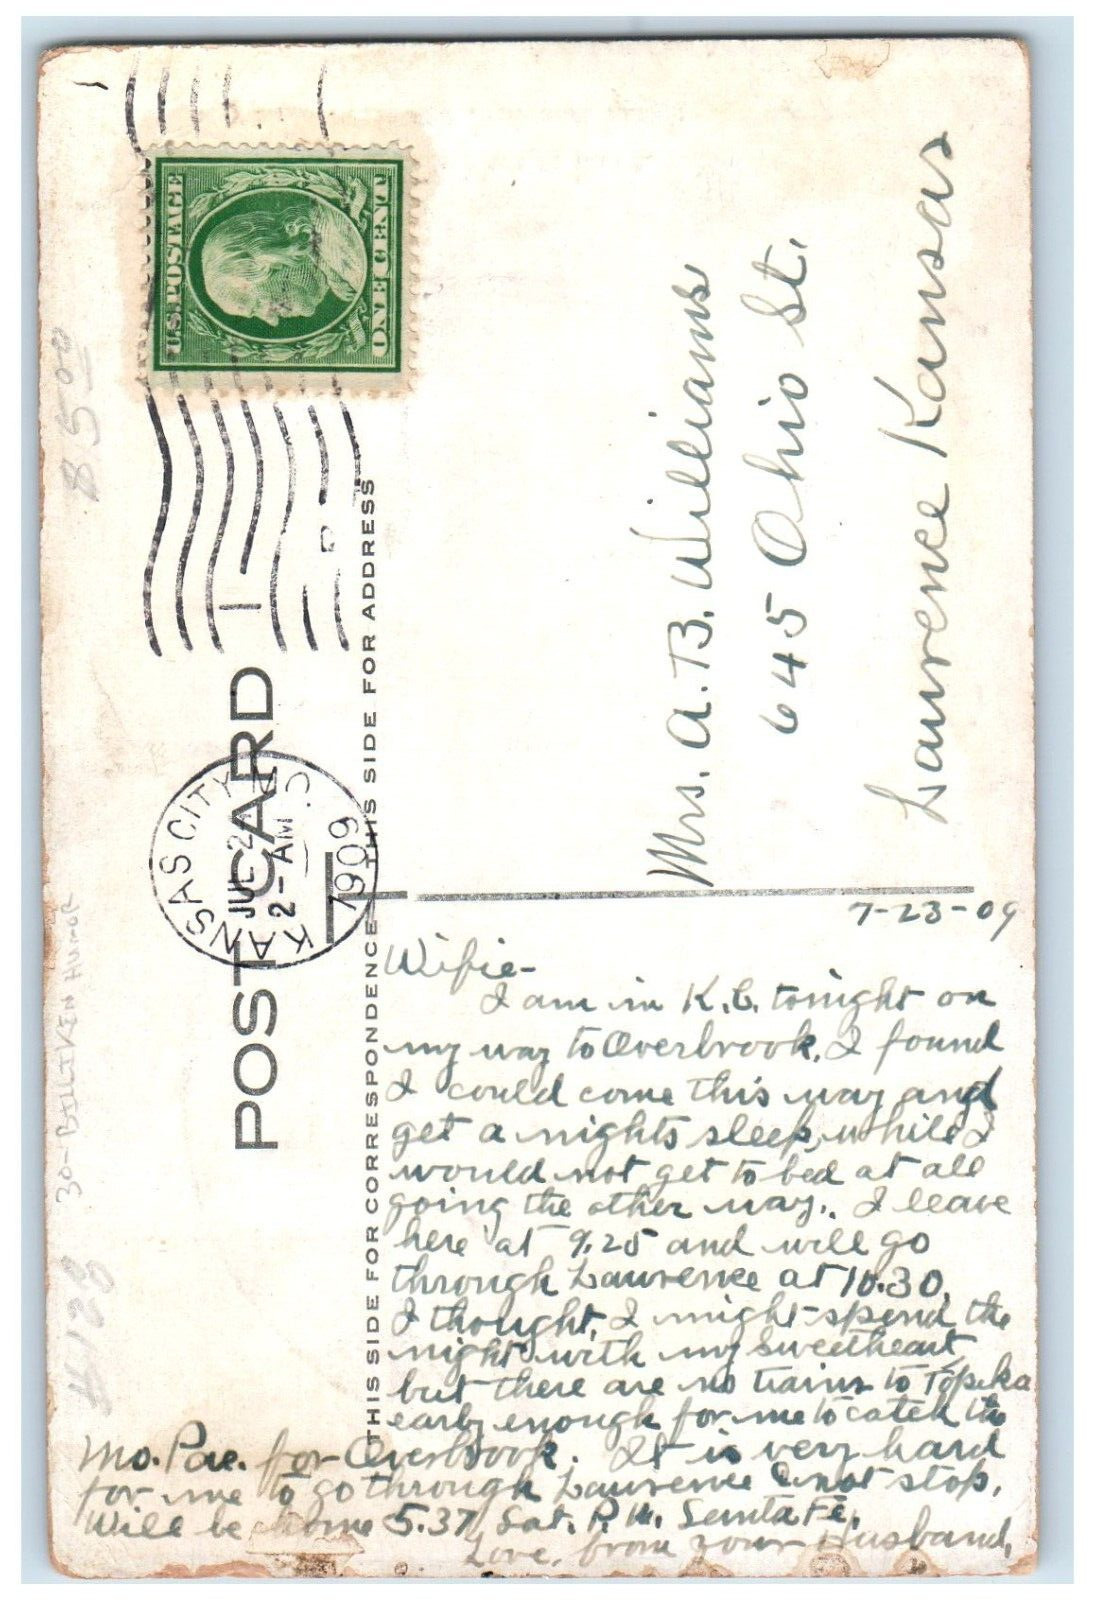 U.S. POSTAGE
ONE CENT
KANSAS CITY, MO.
JUL 24
2-AM
1909
1
POST CARD
THIS SIDE FOR CORRESPONDENCE
THIS SIDE FOR ADDRESS
Mrs. A. B. Williams
645 Ohio St.
Lawrence Kansas
7-23-09
Wifie-
I am in K.C. tonight on
my way to Overbrook. I found
I could come this way and
get a nights sleep, while I
would not get to bed at all
going the other way. I leave
here at 9.25 and will go
through Lawrence at 10.30.
I thought, I might spend the
night with my sweetheart
but there are no trains to Topeka
early enough for me to catch the
Mo. Pac. for Overbrook. It is very hard
for me to go through Lawrence & not stop.
Will be home 5.37 Sat. P.M. Santa Fe.
Love, from your Husband,
8.500
30-BILLIKEN HUMOR
#123